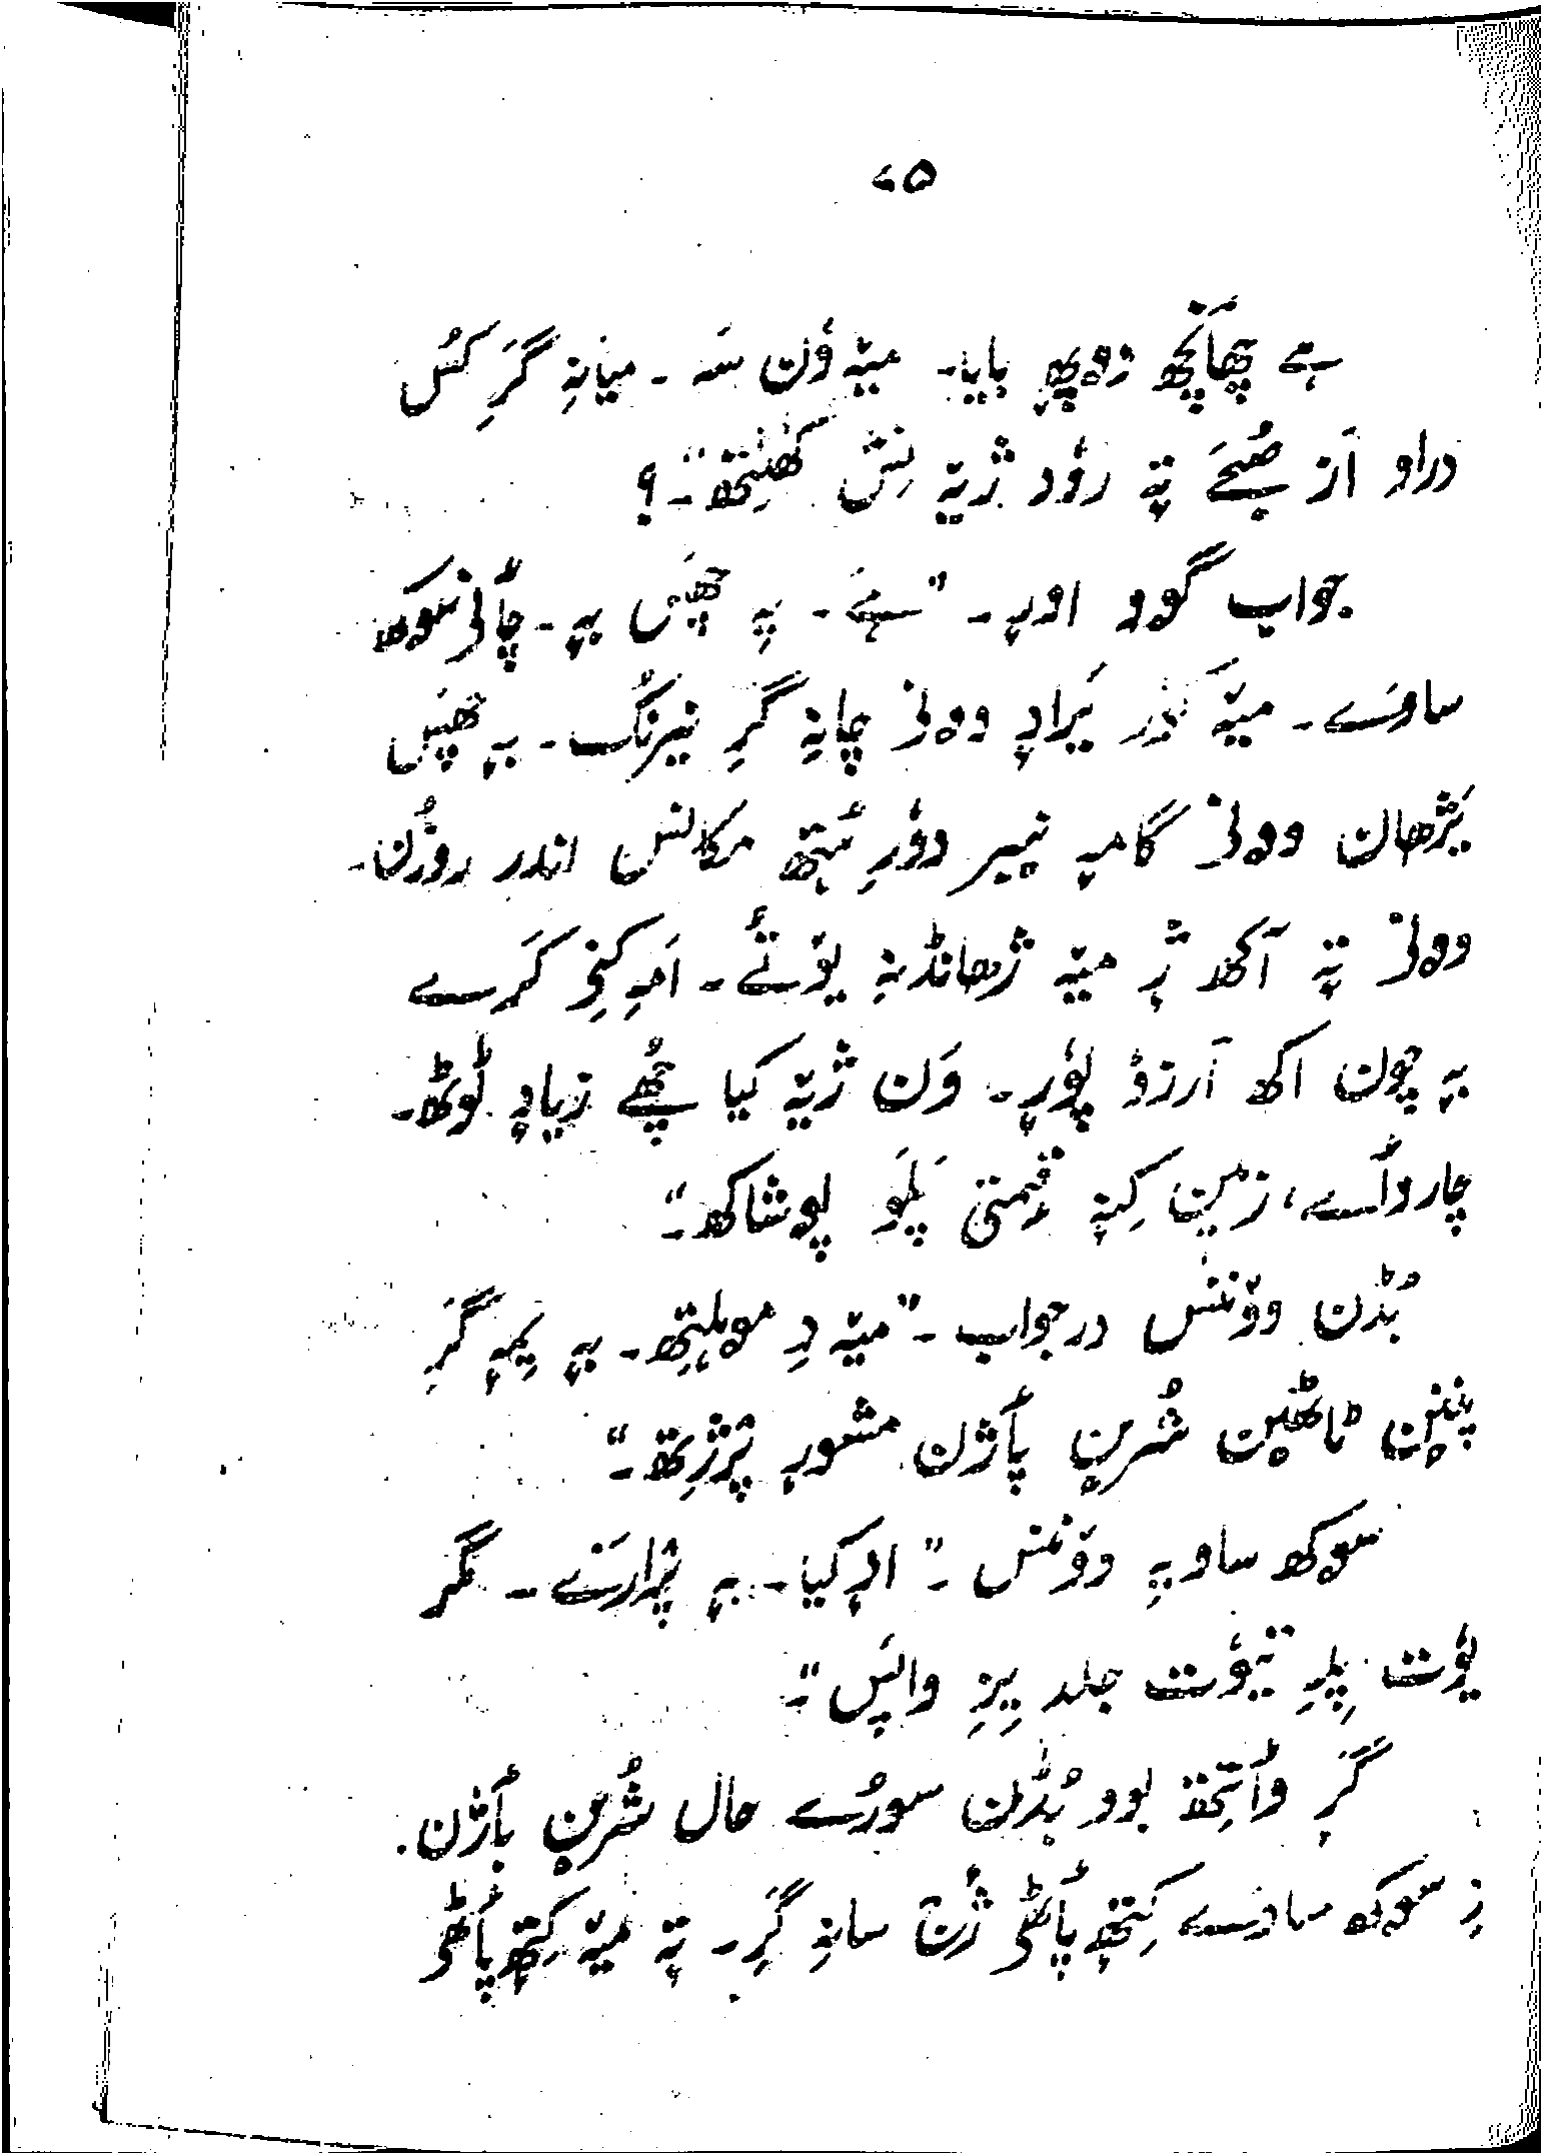 ۷۵
ہے چھاٚنچھ روٗپھ بایا۔ میٚہ وَن سَہ۔ میانِہ گَرِ کُس
دراو اَز صُبحَے تہٕ روٗد ژیٚہ نِش کھٔٹِتھ"۔؟
جواب گوو اورٕ۔ "ہے۔ یہِ چھَس بہٕ۔ چأنۍ سۄکھ
ساوَے۔ میٚہ کوٚر یَرادٕ وۄنۍ چانِہ گرِ نیرنُک۔ بہٕ چھَس
یَژھان وۄنۍ گامہٕ نیبر دوٗرِ ہِتھ مکانس اندر روزُن۔
وۄنۍ تہٕ آکھ ژٕ میٚہ ژھانڈنہِ یوٚتُے۔ اَمہِ کِنۍ کَرے
بہٕ چون اکھ آرزوٗ پوٗرٕ۔ وَن ژیٚہ کیا چھُے زیادٕ ٹوٚٹھ۔
چاروأے، زمین کِنہٕ قیمتی پَلَو پوشاکھ"۔
بُڈن ووٚننس در جواب۔ "میٚہ دِ موہلتھ۔ بہٕ یِمہٕ گَرِ
پننین ٹاٹھین شُرین بأژن مشورٕ پرٕژھِتھ"۔
سۄکھ ساوِیہِ ووٚننس۔ "ادٕ کیا۔ بہٕ پرٛارَنے۔ مگر
یوٗت پِلہِ تیوٗت جلد یِزِ واپس"۔
گَرٕ وأتِتھ بوو بُڈٕن سورُے حال شُرین بأژن۔
زِ سۄکھ ساوَے کِتھٕ پأٹھۍ ژٔن سانِہ گَرِ۔ تہٕ میٚہ کِتھٕ پأٹھۍ